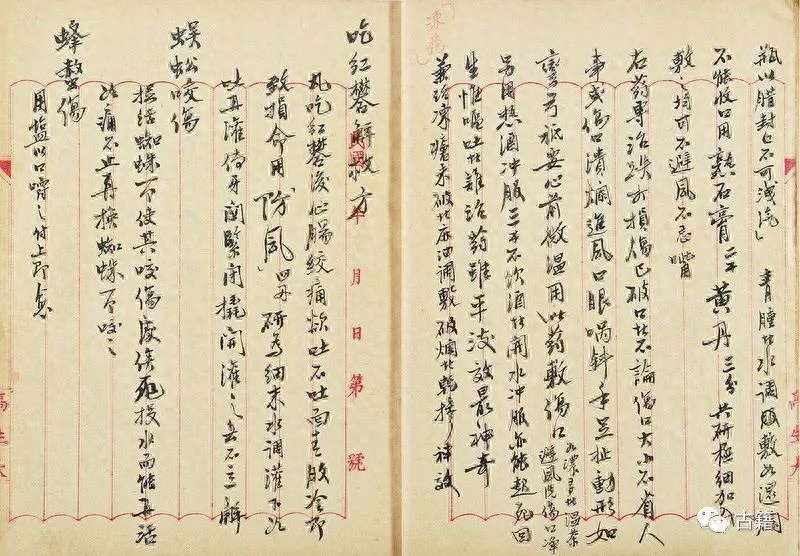 瓶以腊封上不可洩汽」 青腫者水調敷如濕爛
不能收口用熟石膏二 黃丹三分共研極細加
敷之均可不避風不忌嘴
右药專治跌打損傷已破口者不論傷口大小不省人
事或傷口潰爛進風口眼喎斜手足扯動形如
彎弓祇要心前微溫用此药敷傷口
如濃多者溫茶
避風洗傷口淨
另用热酒冲服三 不飲酒者開水冲服亦能起死回
生惟嘔吐者難治药雖平淡效最神奇
兼治凍瘡未破者麻油調敷破爛者乾摻神效
凍瘡
吃紅礬解救方
凡吃紅礬後心腸絞痛欲吐不吐面青肢冷即
致損命用「防風」四 研為細末水調灌下
吐再灌倘牙関緊閉撬開灌之 立解
蜈蚣咬傷
擒活蜘蛛一 使其咬傷 俟 投水而能再活
如痛不止再換蜘蛛 咬之
蜂螫傷
用鹽以口嚼之付上即愈
年 月 日 第 號
高生大
古籍